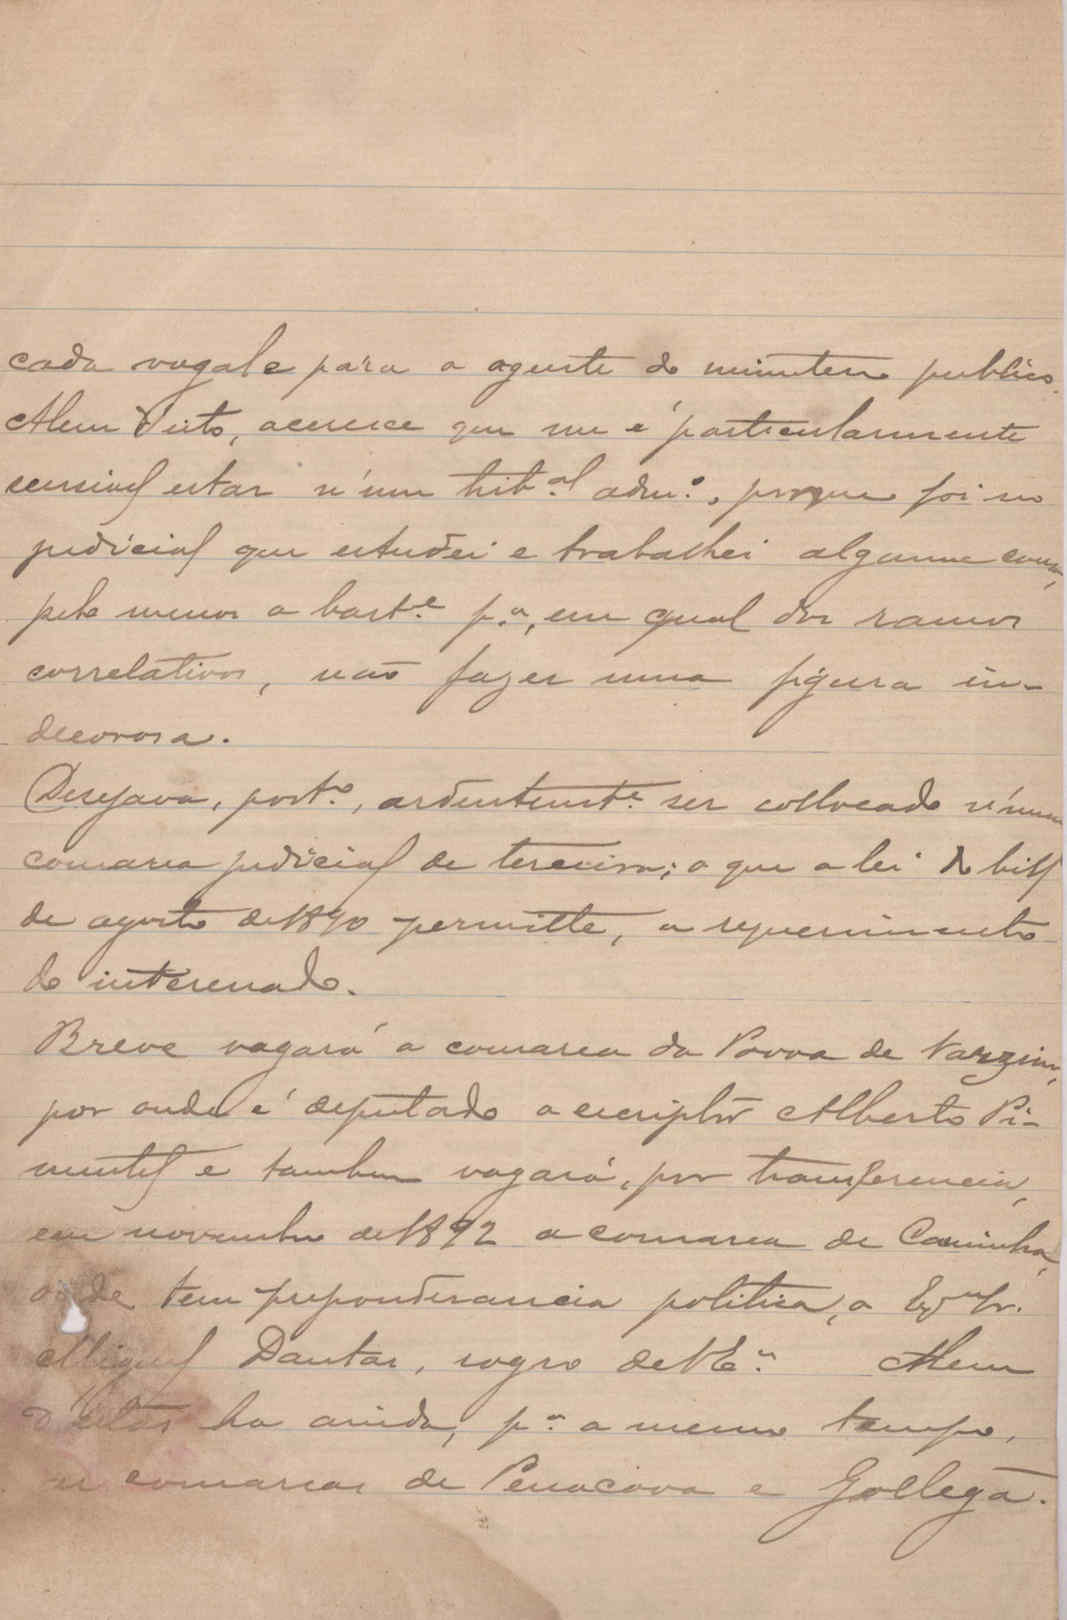 cada vogal e para o agente do ministerio publico.
Alem d'isto, accresce que me é particularmente
sensivel estar n'um trib.al adm.o, porque foi no
judicial que estudei e trabalhei alguma cousa,
pelo menos o bast.e p.a, em qual dos ramos
correlativos, não fazer uma figura in-
decorosa.
Desejava, port.o, ardentemt.e ser collocado n'uma
comarca judicial de terceira; o que a lei de
de agosto de 1890 permitte, a requerimento
do interessado.
Breve vagará a comarca da Povoa de Varzim,
por onde é deputado o escriptor Alberto Pi-
mentel e tambem vagará, por transferencia,
em novembro de 1892 a comarca de Caminha,
onde tem preponderancia politica, o Ex.mo Sr.
Miguel Dantas, sogro de V. Ex.a Alem
d'estas ha ainda, p.a o mesmo tempo,
as comarcas de Penacova e Gollegã.